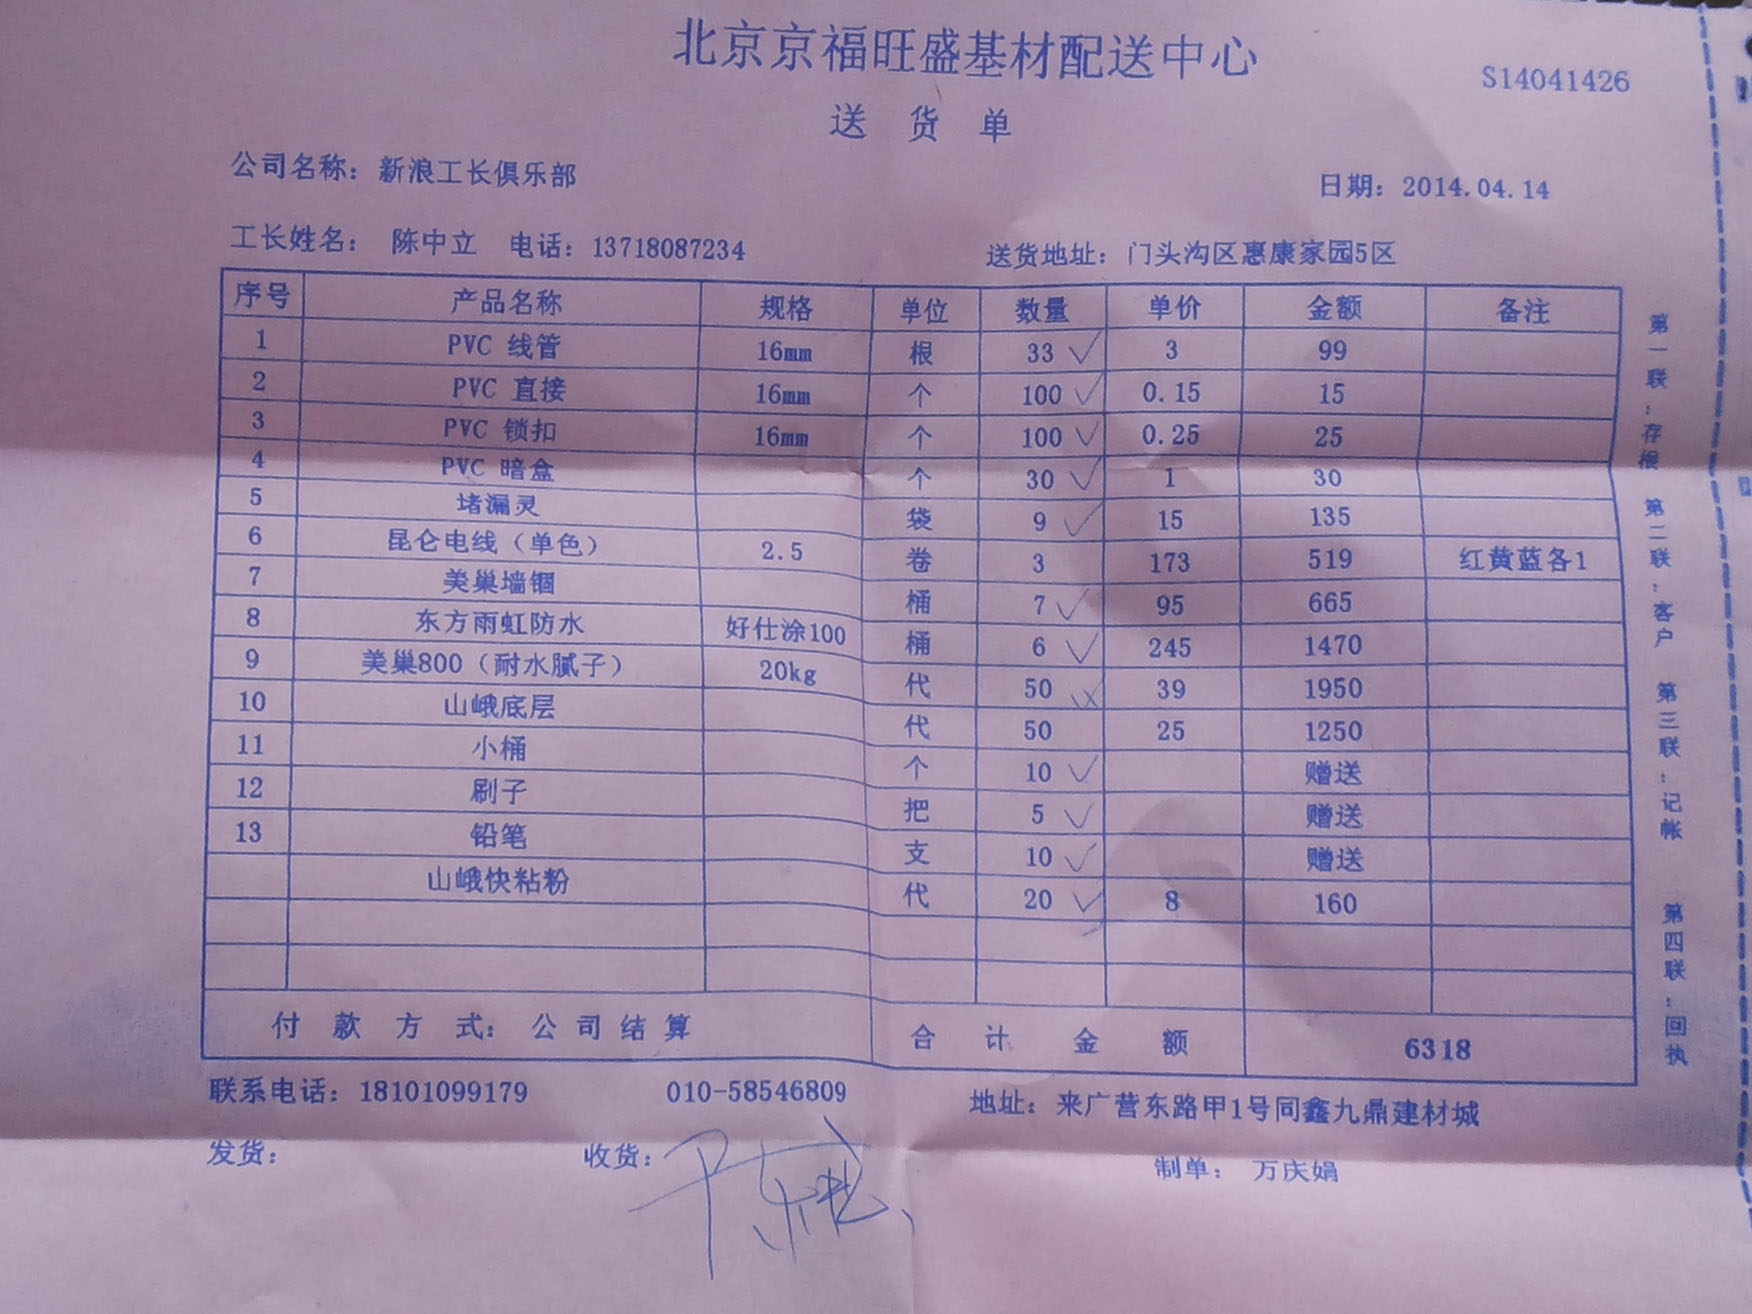 北京京福旺盛基材配送中心
S14041426
送 货 单
公司名称：新浪工长俱乐部 日期：2014.04.14
工长姓名： 陈中立 电话：13718087234 送货地址：门头沟区惠康家园5区
序号 产品名称 规格 单位 数量 单价 金额 备注
1 PVC 线管 16mm 根 33 3 99
2 PVC 直接 16mm 个 100 0.15 15
3 PVC 锁扣 16mm 个 100 0.25 25
4 PVC 暗盒 个 30 1 30
5 堵漏灵 袋 9 15 135
6 昆仑电线（单色） 2.5 卷 3 173 519 红黄蓝各1
7 美巢墙锢 桶 7 95 665
8 东方雨虹防水 好仕涂100 桶 6 245 1470
9 美巢800（耐水腻子） 20kg 代 50 39 1950
10 山峨底层 代 50 25 1250
11 小桶 个 10 赠送
12 刷子 把 5 赠送
13 铅笔 支 10 赠送
山峨快粘粉 代 20 8 160
付 款 方 式：公 司 结 算 合 计 金 额 6318
联系电话：18101099179 010-58546809 地址：来广营东路甲1号同鑫九鼎建材城
发货： 收货： 制单： 万庆娟
第一联：存根 第二联：客户 第三联：记帐 第四联：回执